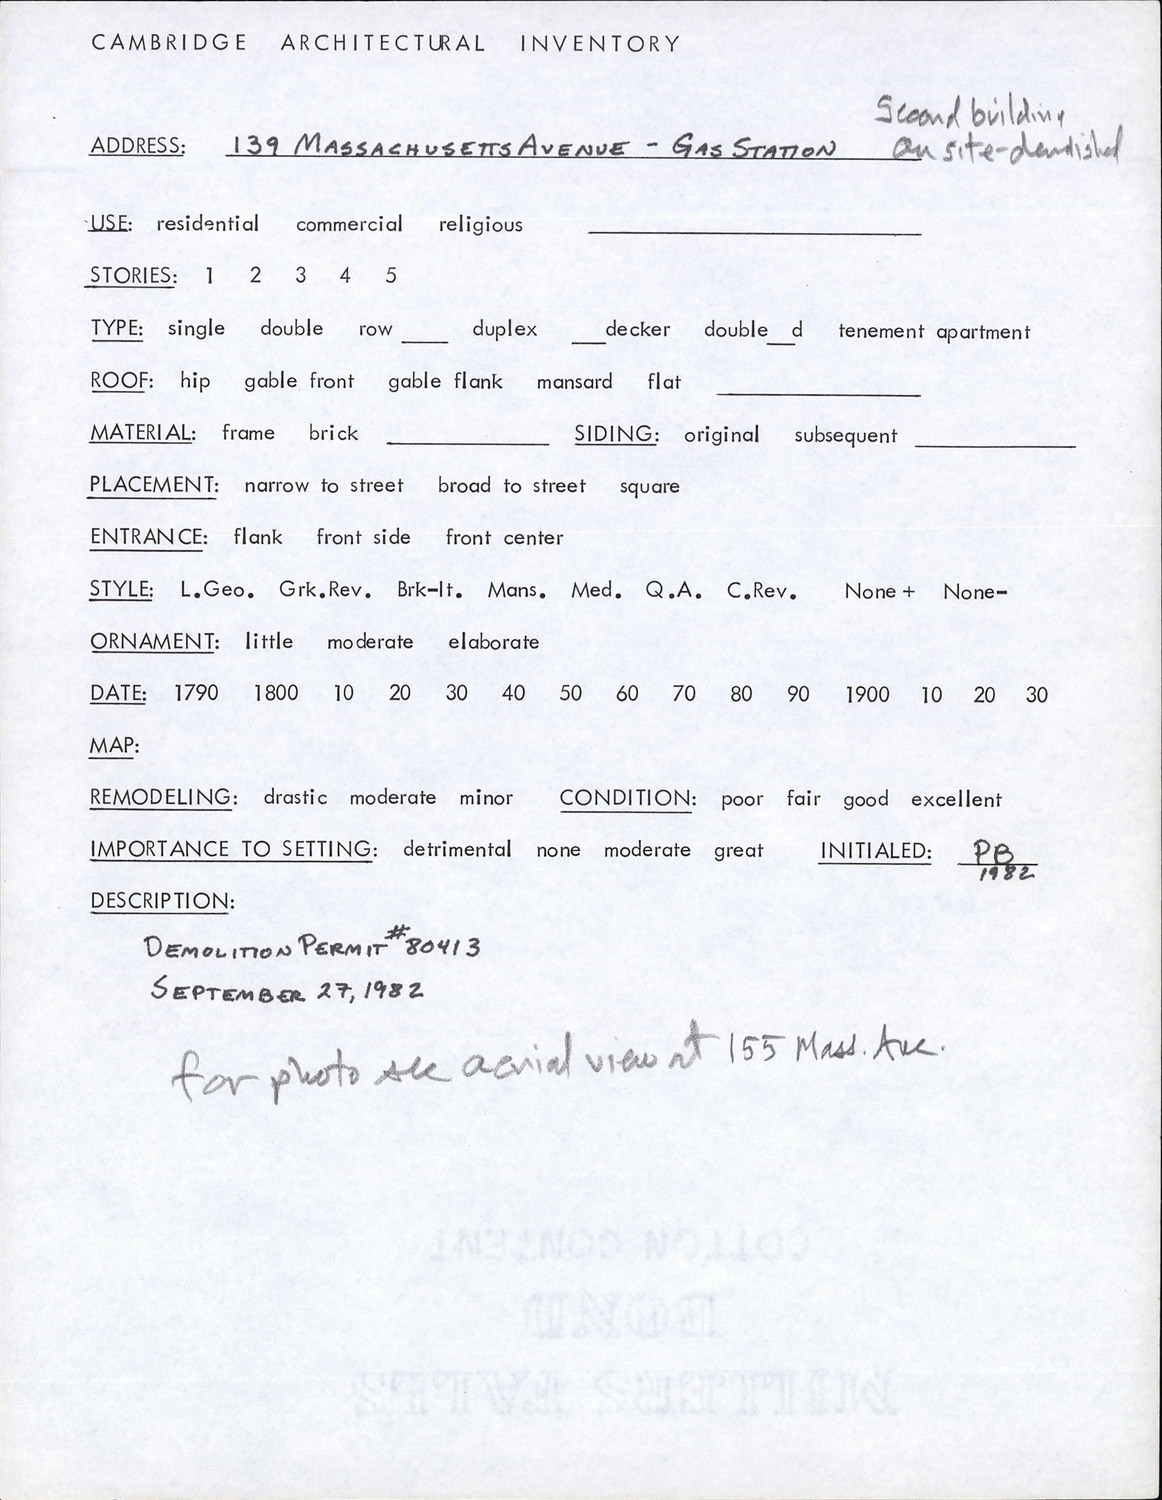 CAMBRIDGE ARCHITECTURAL INVENTORY
Second building
on site-demolished
ADDRESS: 139 MASSACHUSETTS AVENUE - GAS STATION
USE: residential commercial religious
STORIES: 1 2 3 4 5
TYPE: single double row____ duplex ___decker double__d tenement apartment
ROOF: hip gable front gable flank mansard flat
MATERIAL: frame brick SIDING: original subsequent
PLACEMENT: narrow to street broad to street square
ENTRANCE: flank front side front center
STYLE: L.Geo. Grk.Rev. Brk-It. Mans. Med. Q.A. C.Rev. None+ None-
ORNAMENT: little moderate elaborate
DATE: 1790 1800 10 20 30 40 50 60 70 80 90 1900 10 20 30
MAP:
REMODELING: drastic moderate minor CONDITION: poor fair good excellent
IMPORTANCE TO SETTING: detrimental none moderate great INITIALED: PB
1982
DESCRIPTION:
DEMOLITION PERMIT #80413
SEPTEMBER 27, 1982
for photo see aerial view at 155 Mass. Ave.
COTTON CONTENT
BOND
MILLERS FALLS